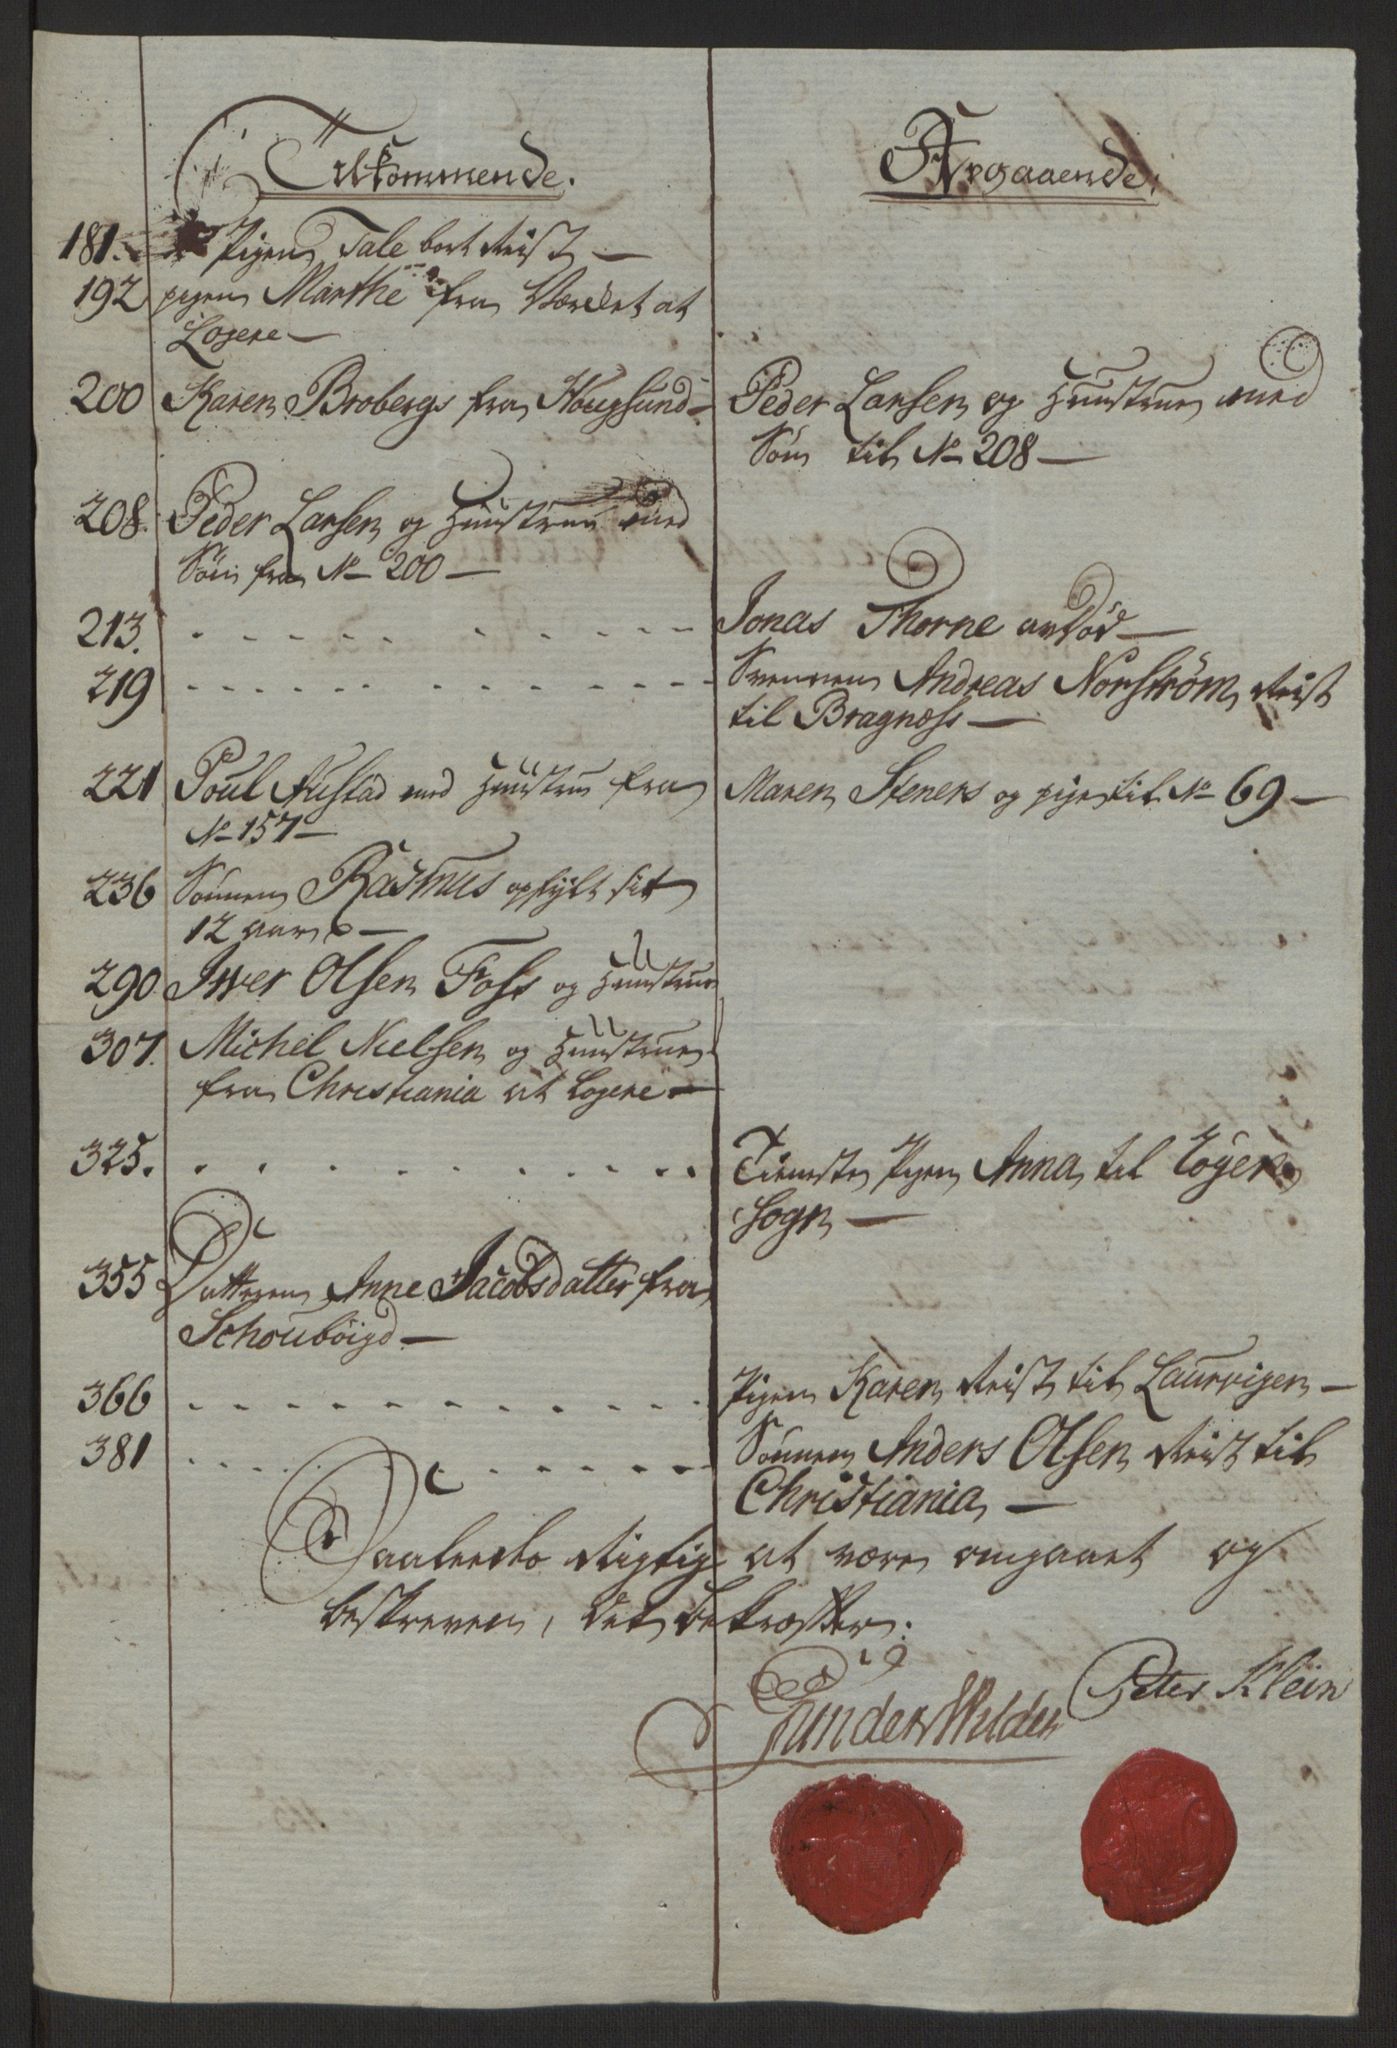 Tilkommende.
Afgaaende.
181. Pigen Tale bort Reist —
192 pigen Marthe fra Værdet at
Logere —
200 Karen Brobergs fra Hougsund —
Peder Larsen og Huustrue med
Søn til No 208 —
208. Peder Larsen og Huustrue med
Søn fra No 200 —
213. Jonas Thorne ved død —
219 Svennen Andreas Norström Reist
til Bragnæss —
221 Poul Austad med Huustrue fra
No 157 —
Maren Steners og pige til No 69 —
236 Sønnen Rasmus opfylt sit
12 aar —
290. Iwer Olsen Foss og Huustrue
307. Michel Nielsen og Huustrue
fra Christiania at Logere —
325. Tieneste Pigen Anna til Eger
Sogn —
355 Datteren Anne Jacobsdatter fra
Schoubøigd —
366 Pigen Karen Reist til Laurvigen —
381 Sønnen Anders Olsen Reist til
Christiania —
Saaledes Rigtig at være omgaaet og
beskreven, det bekræfter.
Gunder Wulder
Peter Klein